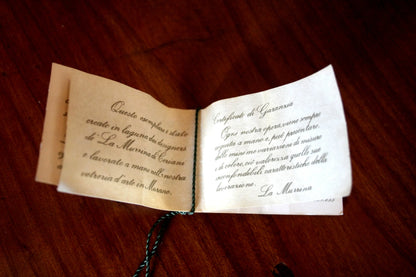 Questo esemplare è stato
creato in laguna dai designers
di "La Murrina di Turiano
e lavorato a mano nella nostra
vetreria d'arte in Murano.
Certificato di Garanzia
Ogni nostra opera, viene sempre
eseguita a mano e, può presentare,
delle minime variazioni di misure
e di colore, né valorizza quelle sue
inconfondibili, caratteristiche della
lavorazione.
La Murrina